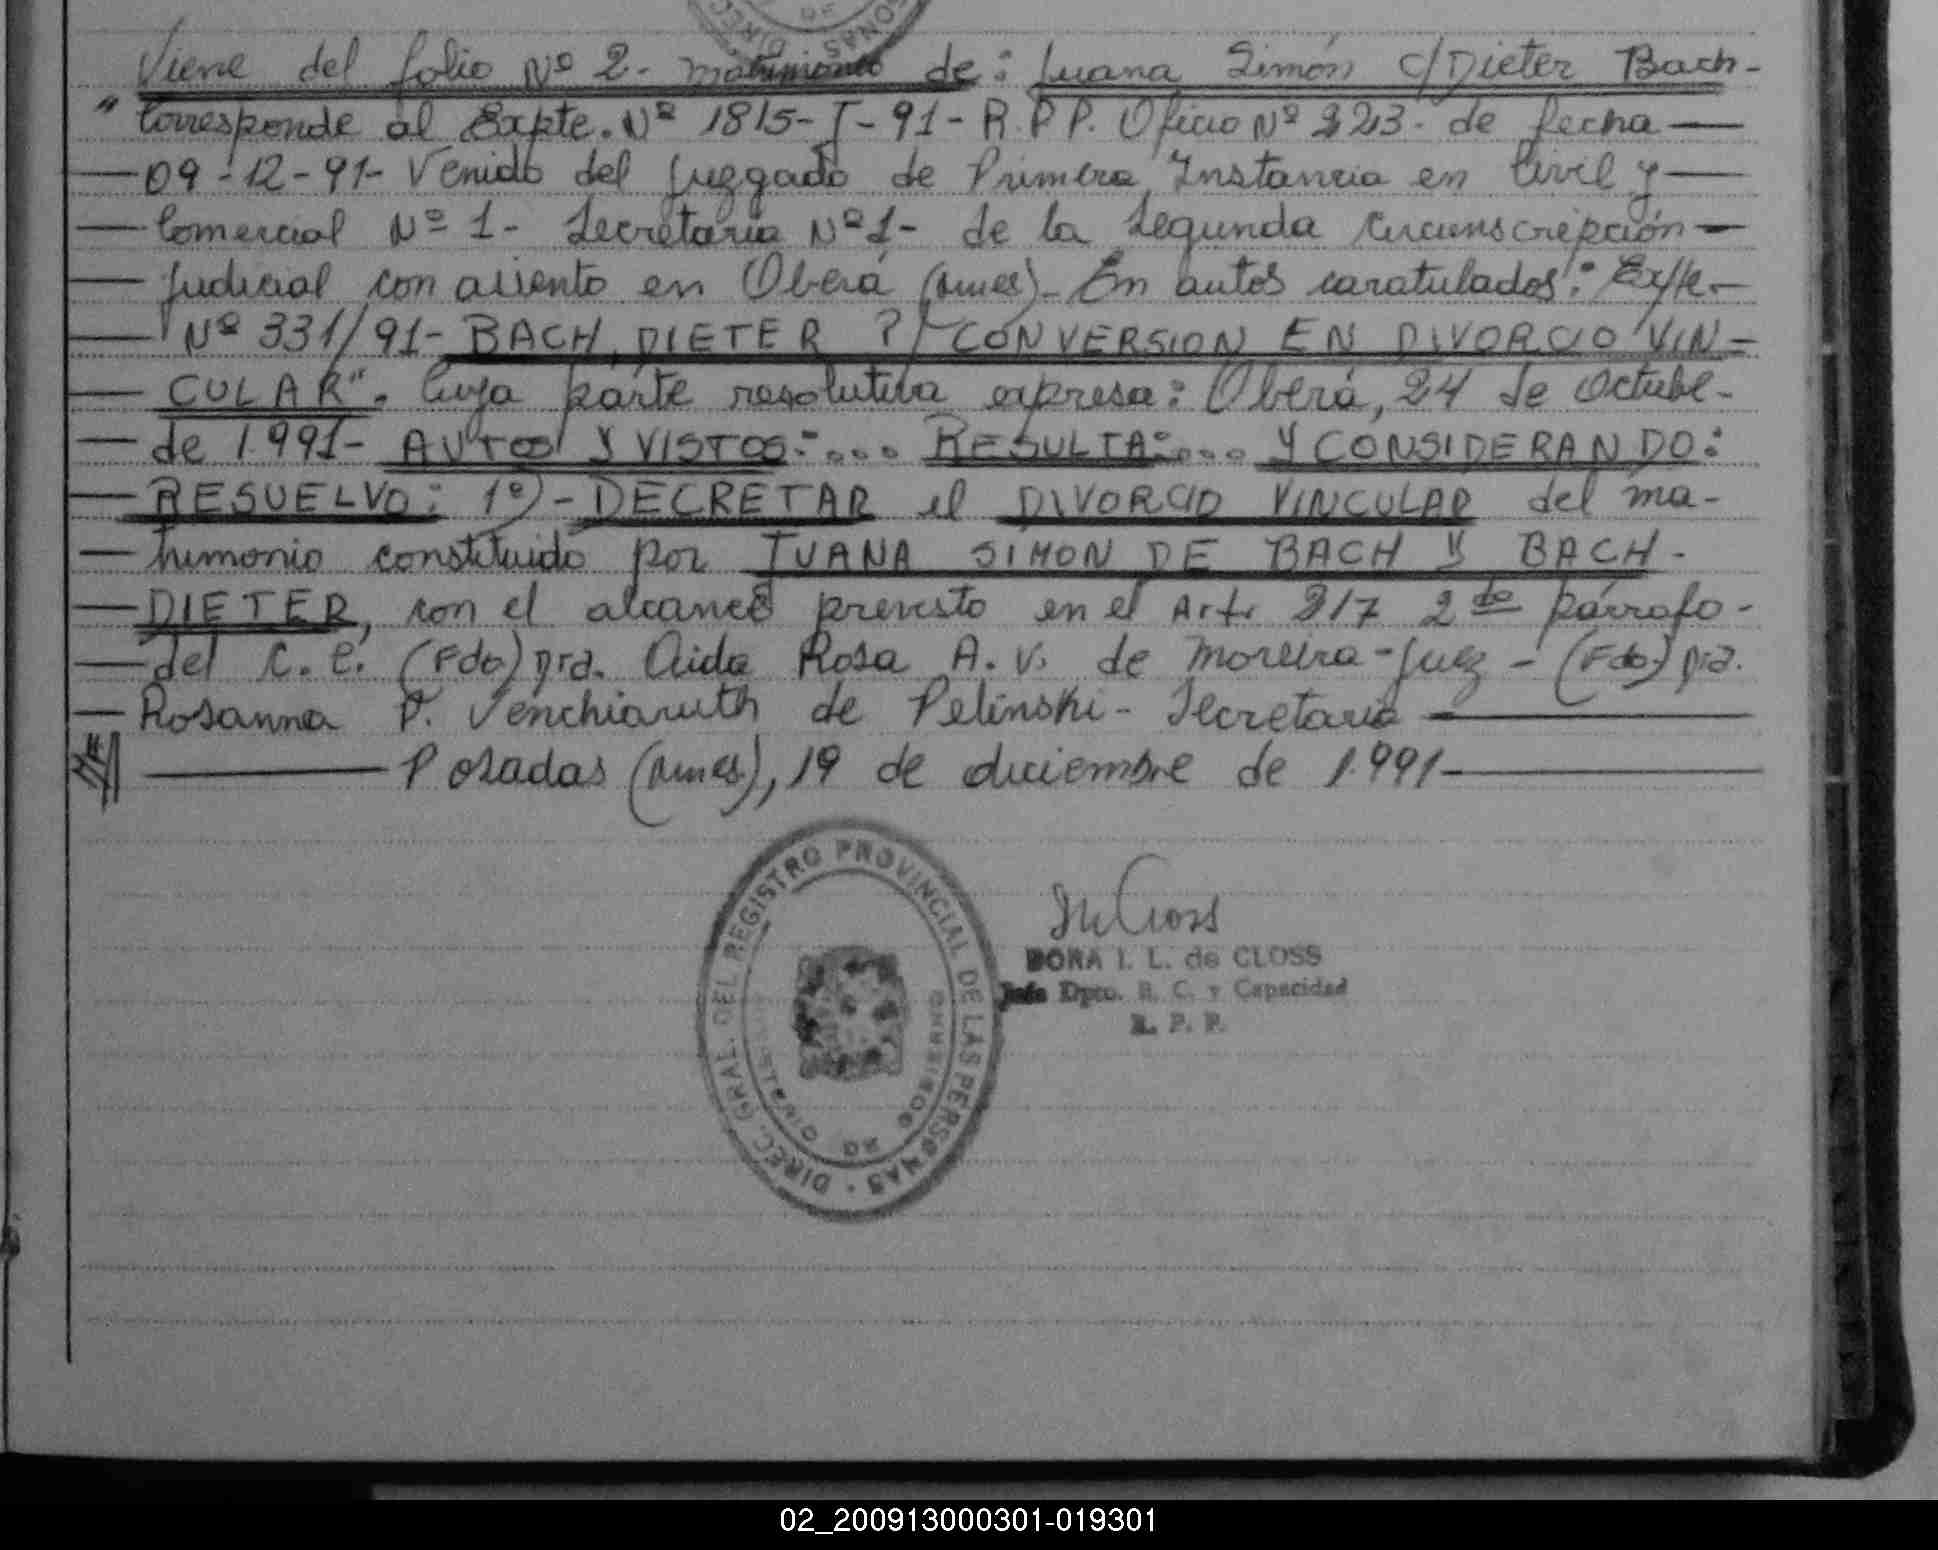 Viene del folio Nº 2- Matrimonio de: Juana Simón c/ Dieter Bach-
" Corresponde al Expte. Nº 1815-I-91-R.P.P. Oficio Nº 323- de fecha —
— 09-12-91- Venido del Juzgado de Primera Instancia en Civil y —
— Comercial Nº 1- Secretaria Nº 1- de la Segunda Circunscripción —
— Judicial con asiento en Oberá (Mnes)- En autos caratulados: Expte-
— Nº 331/91- BACH, DIETER P/ CONVERSION EN DIVORCIO VIN=
— CULAR". Cuya parte resolutiva expresa: Oberá, 24 de Octubre-
— de 1.991- AUTOS Y VISTOS:... RESULTA:... Y CONSIDERANDO:
— RESUELVO: 1º)- DECRETAR el DIVORCIO VINCULAR del ma-
— trimonio constituido por JUANA SIMON DE BACH Y BACH-
— DIETER, con el alcance previsto en el Art. 217 2do párrafo-
— del C.C. (Fdo) Dra. Aida Rosa A. V. de Moreira-Juez-(Fdo) Dra.
— Rosanna P. Venchiarutti de Pelinski- Secretaria —
— Posadas (Mnes), 19 de diciembre de 1.991 —
DIREC. GRAL. DEL REGISTRO PROVINCIAL DE LAS PERSONAS
DORA I. L. de CLOSS
Jefa Dpto. E. C. y Capacidad
R. P. P.
02_200913000301-019301